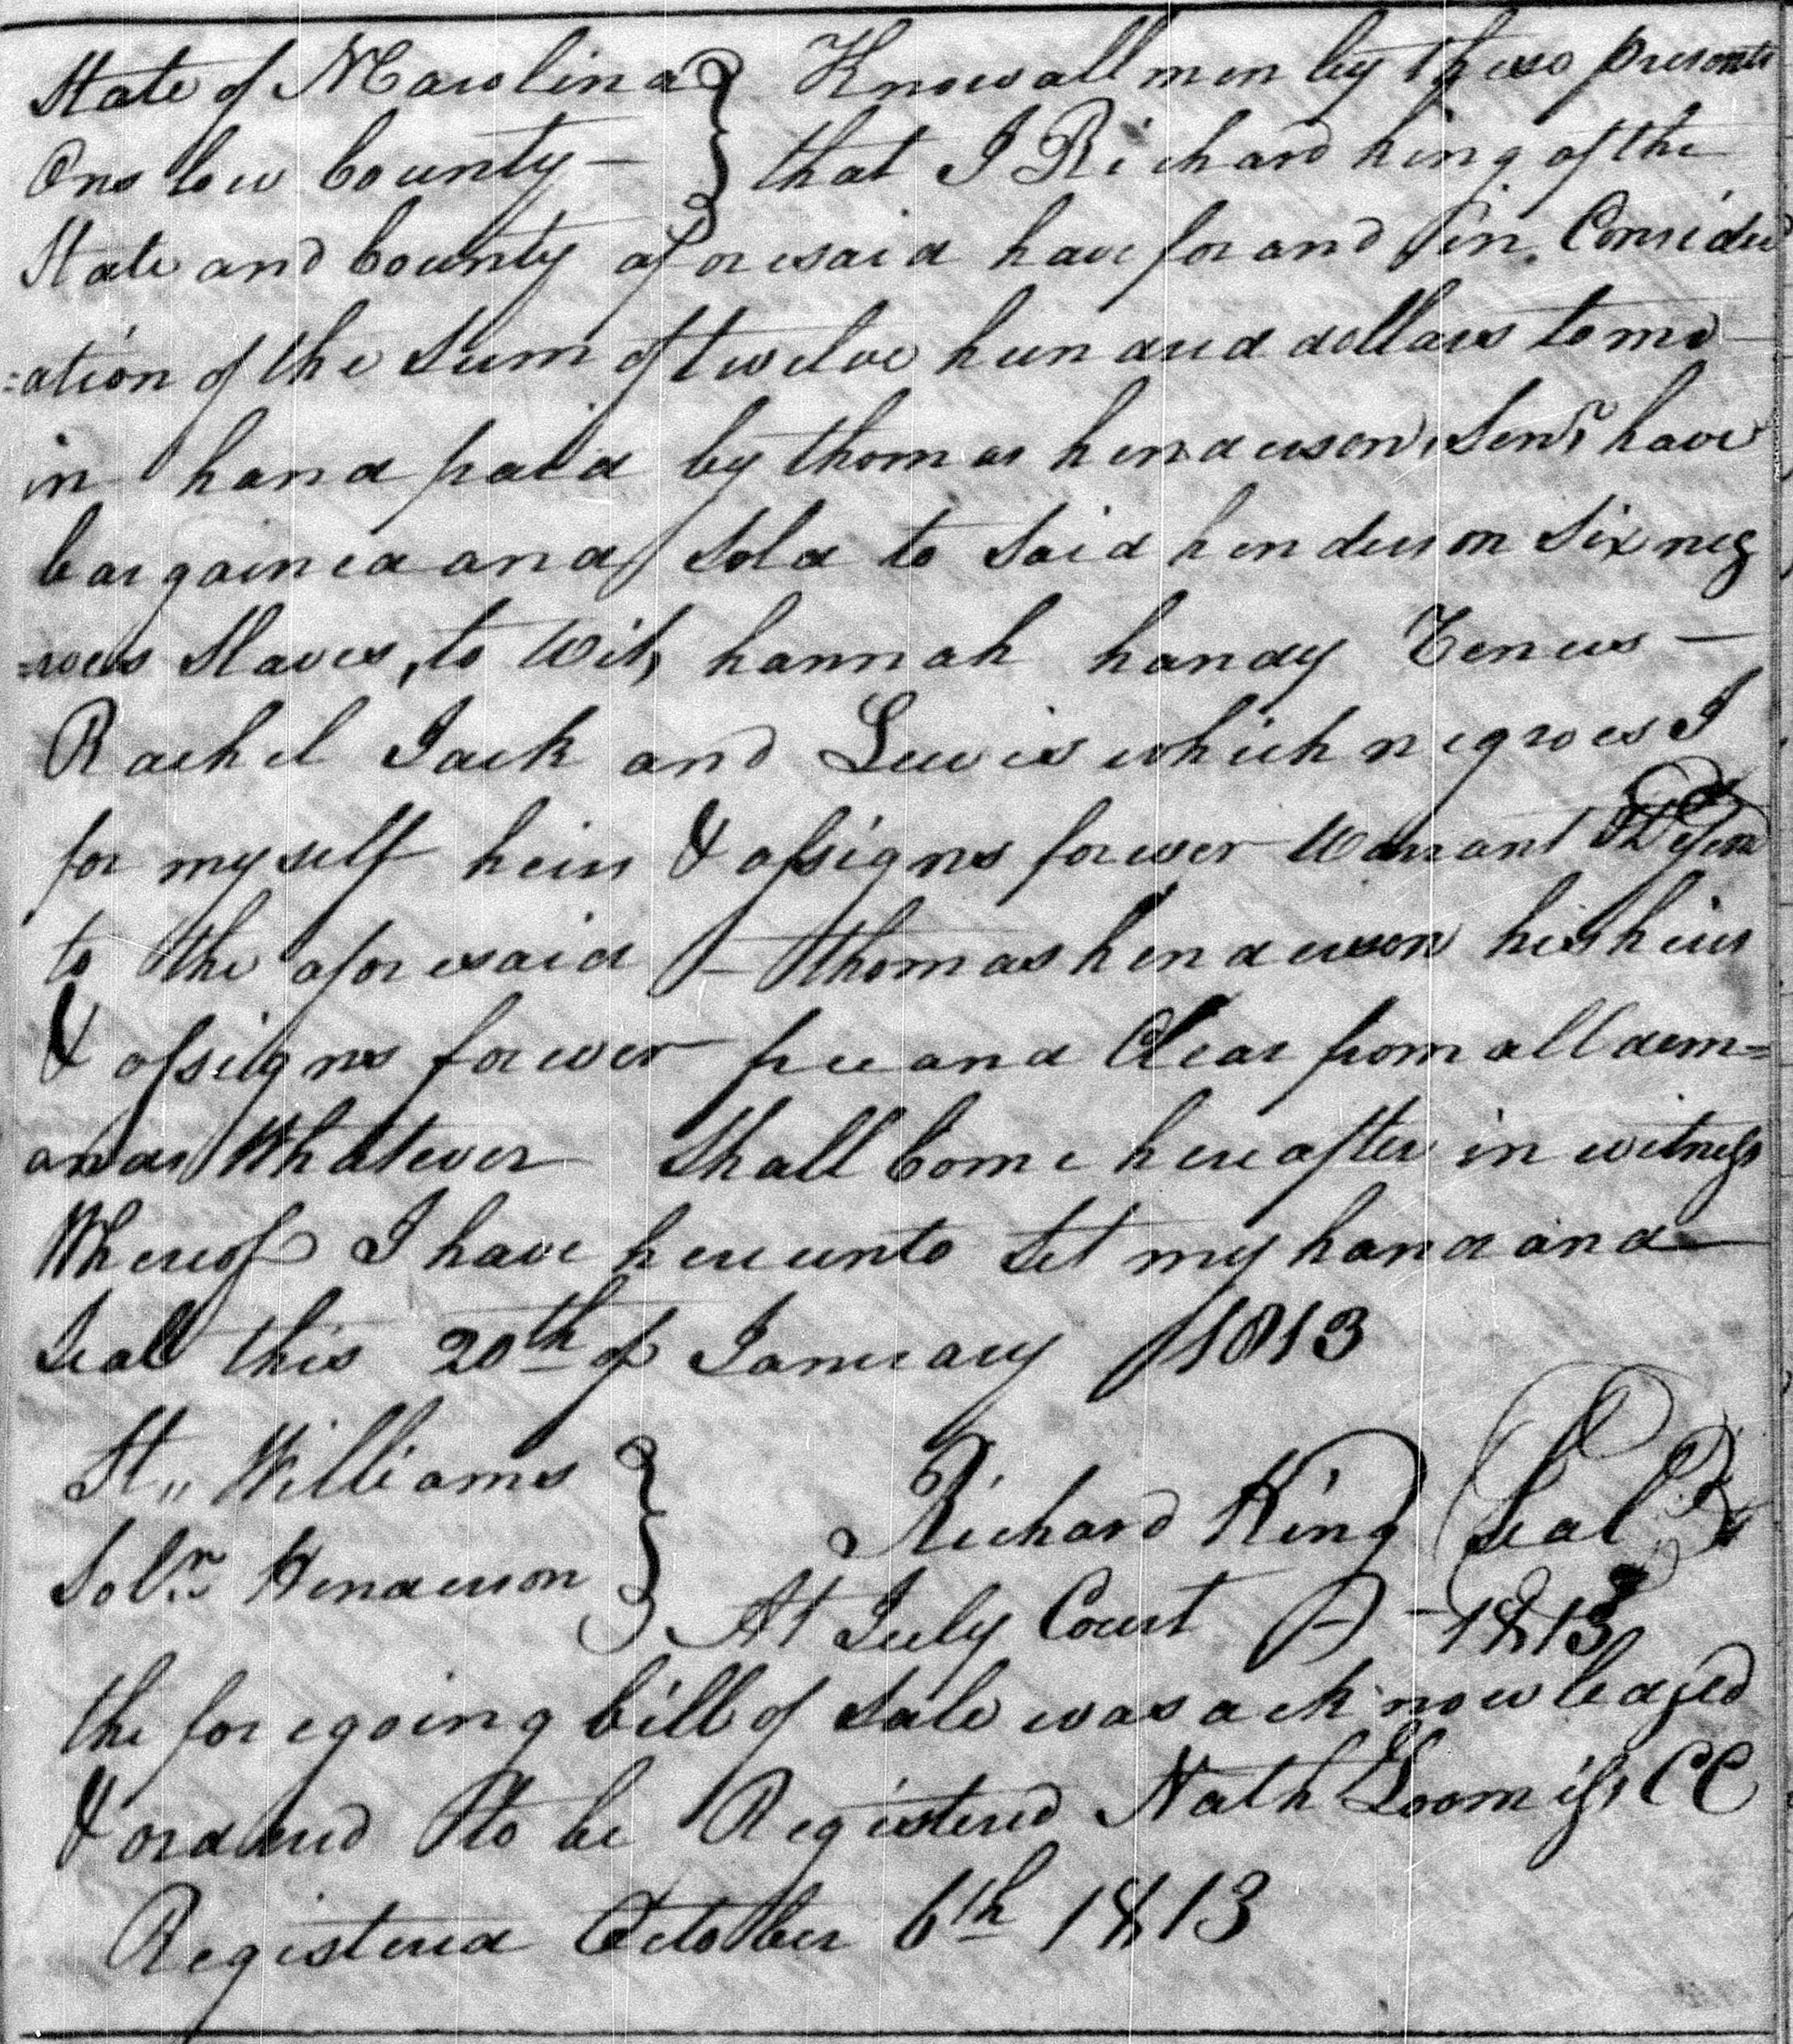 State of N Carolina } Know all men by these presents
Onslow County — } that I Richard king of the
State and County aforesaid have for and in Consider
=ation of the Sum of twelve hundred dollars to me
in hand paid by thomas henderson, Senr, have
bargained and sold to Said henderson Six neg
=roes Slaves, to Wit, hannah handy Teneus —
Rachel Jack and Lewis which negroes I
for myself heirs & assigns forever Warrant & Defend
to the aforesaid — thomas henderson his heirs
& assigns forever free and Clear from all dem=
ands Whatever Shall Come hereafter in witness
Whereof I have hereunto Set my hand and
Seal this 20th of January 1813
St,, Williams }
Richard King Seal
Solr. Henderson }
At July Court — 1813
the foregoing bill of Sale was acknowledged
& ordered to be Registered Nath Loomiss CC
Registered October 6th 1813